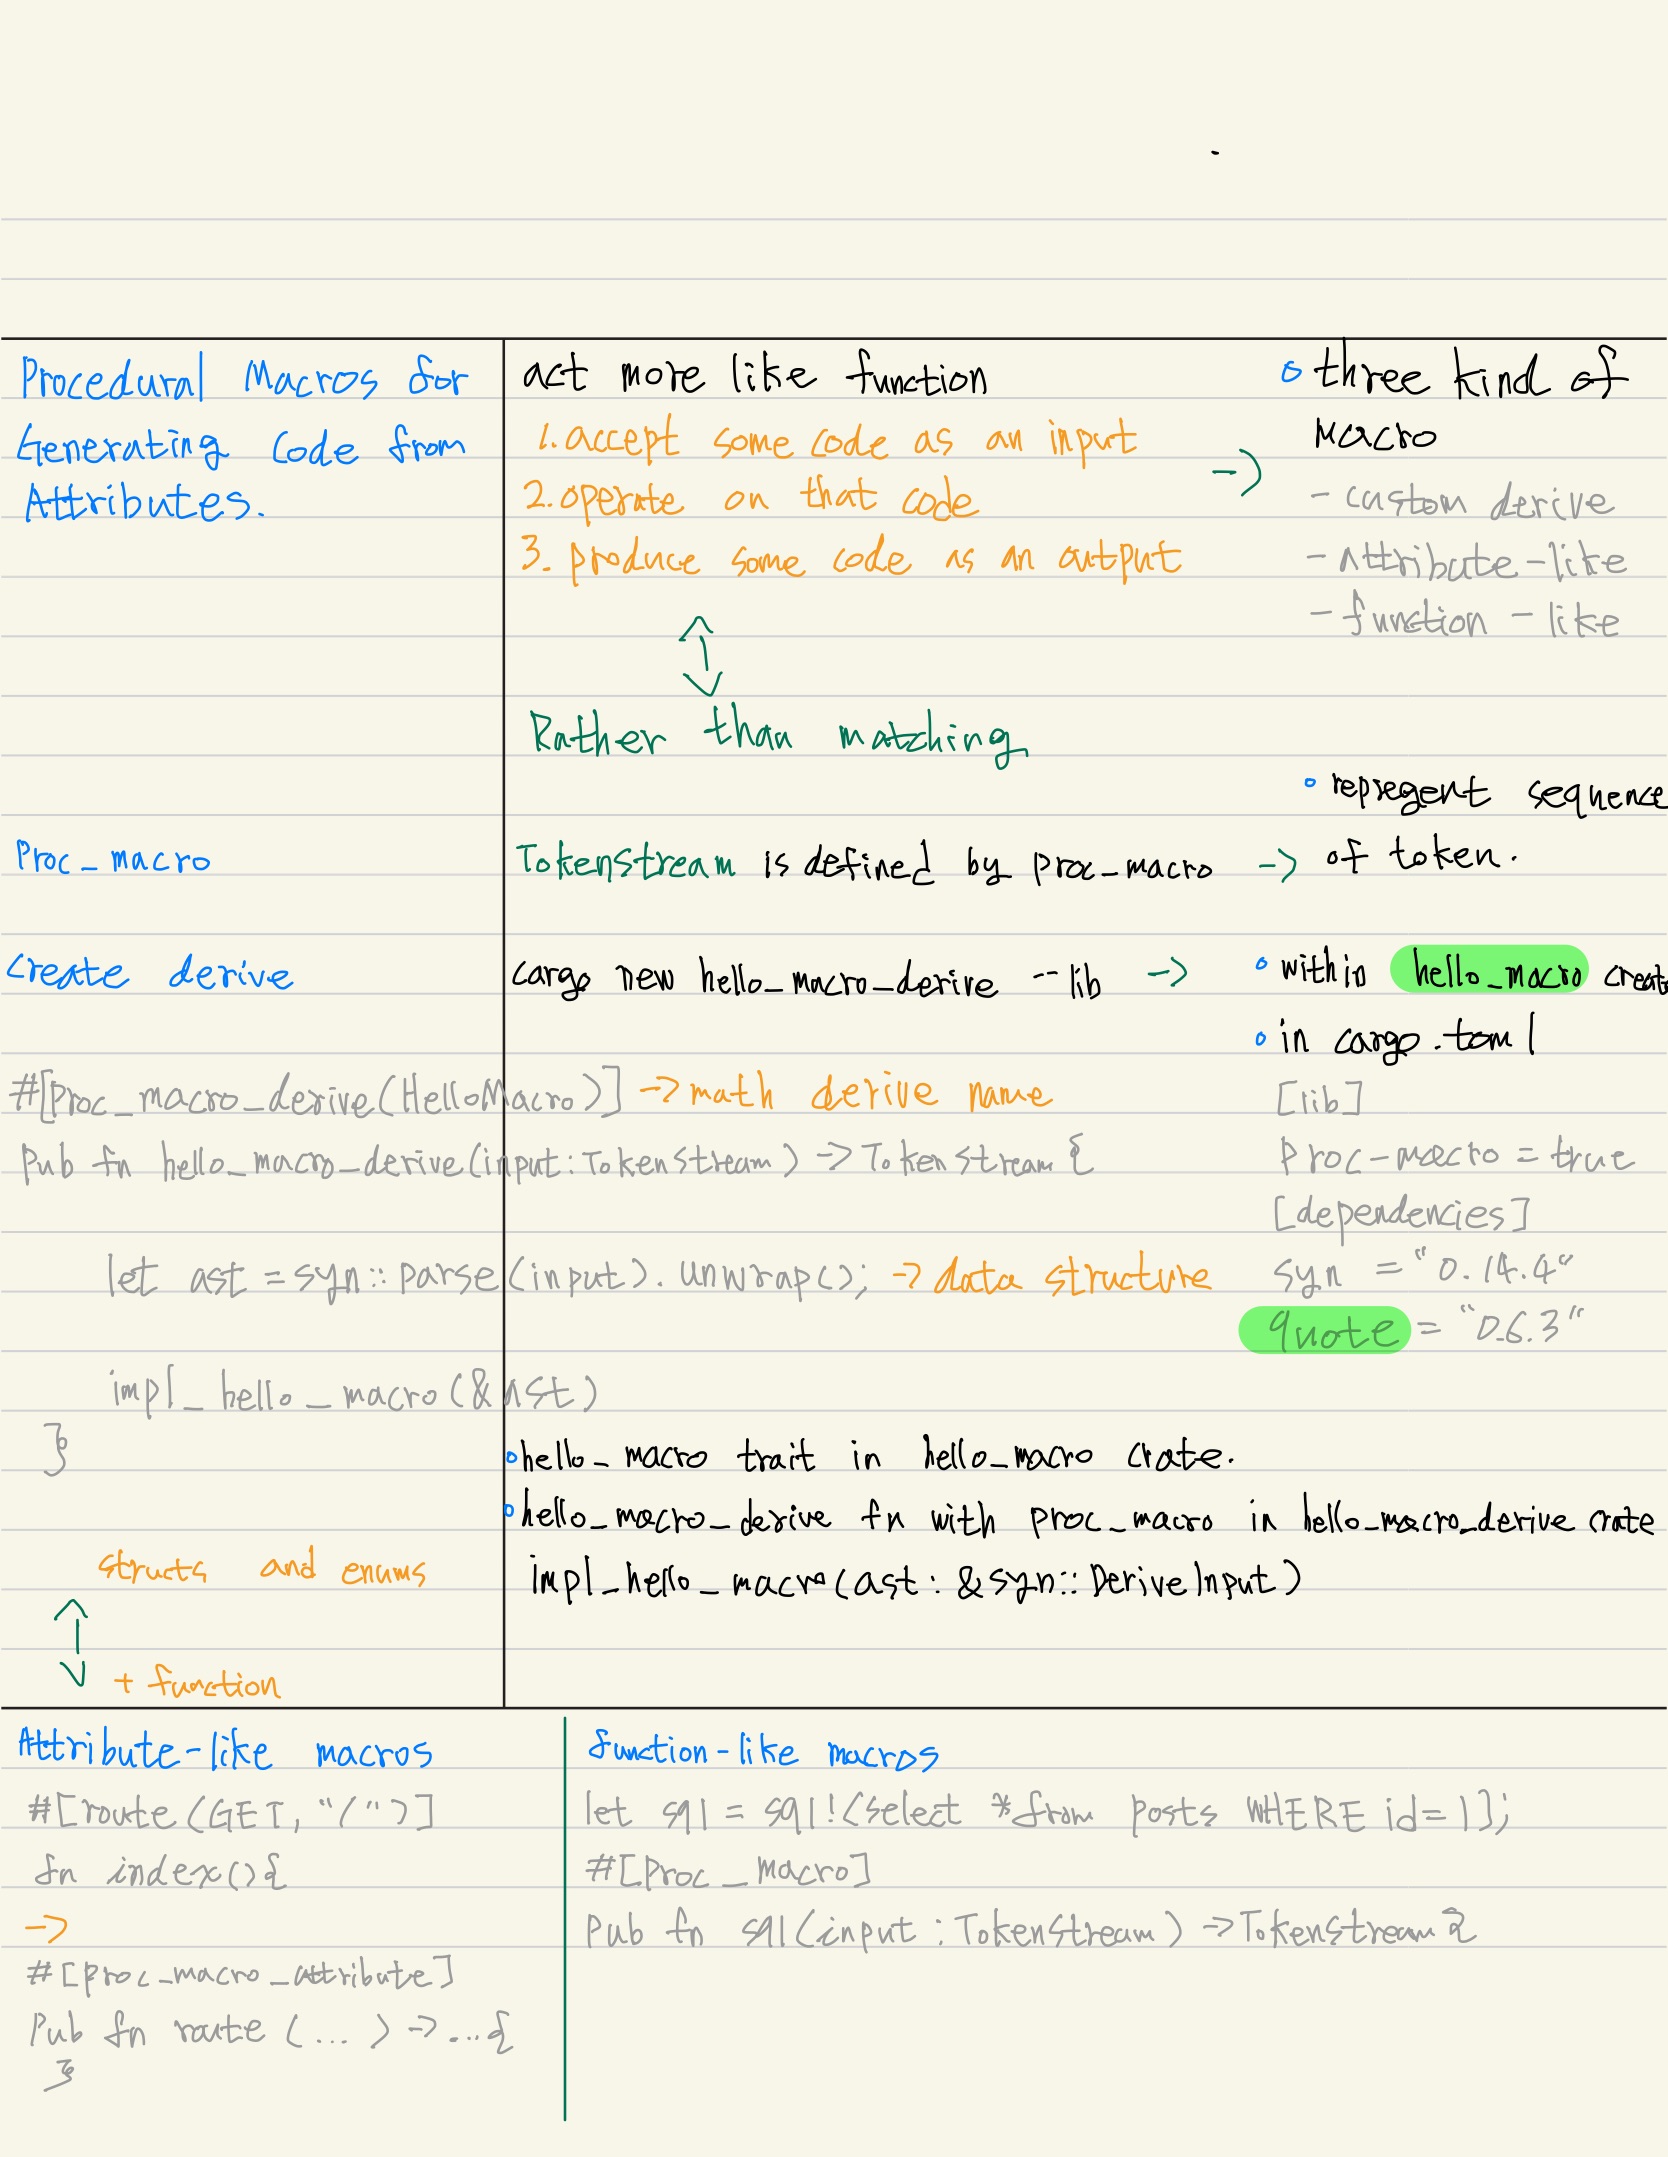 Procedural Macros for
Generating Code from
Attributes.
act more like function
1. accept some code as an input
2. operate on that code
3. produce some code as an output
Rather than matching
→
∘ three kind of
Macro
- custom derive
- attribute-like
- function-like
Proc_macro
Tokenstream is defined by proc_macro →
∘ repregent sequence
of token.
Create derive
cargo new hello_macro_derive --lib →
∘ within hello_macro create
∘ in cargo.toml
[lib]
Proc-macro = true
[dependencies]
syn = "0.14.4"
quote = "0.6.3"
#[Proc_macro_derive(HelloMacro)] → math derive name
Pub fn hello_macro_derive(input:TokenStream) → TokenStream {
let ast = syn::parse(input).unwrap(); → data structure
impl_hello_macro(&ast)
}
∘ hello_macro trait in hello_macro crate.
∘ hello_macro_derive fn with proc_macro in hello_macro_derive crate
impl_hello_macro(ast: &syn::DeriveInput)
structs and enums
+ function
Attribute-like macros
#[route(GET, "/")]
fn index(){
→
#[proc_macro_attribute]
Pub fn route (...) → ...{
}
function-like macros
let sql = sql!(select * from posts WHERE id=1];
#[Proc_macro]
Pub fn sql(input: TokenStream) → Tokenstream {